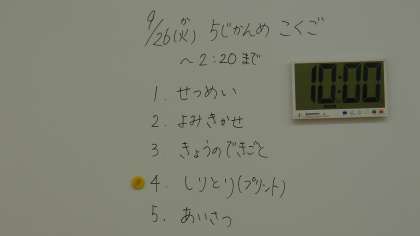 9/26(火) 5じかんめ こくご
か
～2:20まで
10:00
1. せつめい
2. よみきかせ
3 きょうのできごと
4. しりとり(プリント)
5. あいさつ